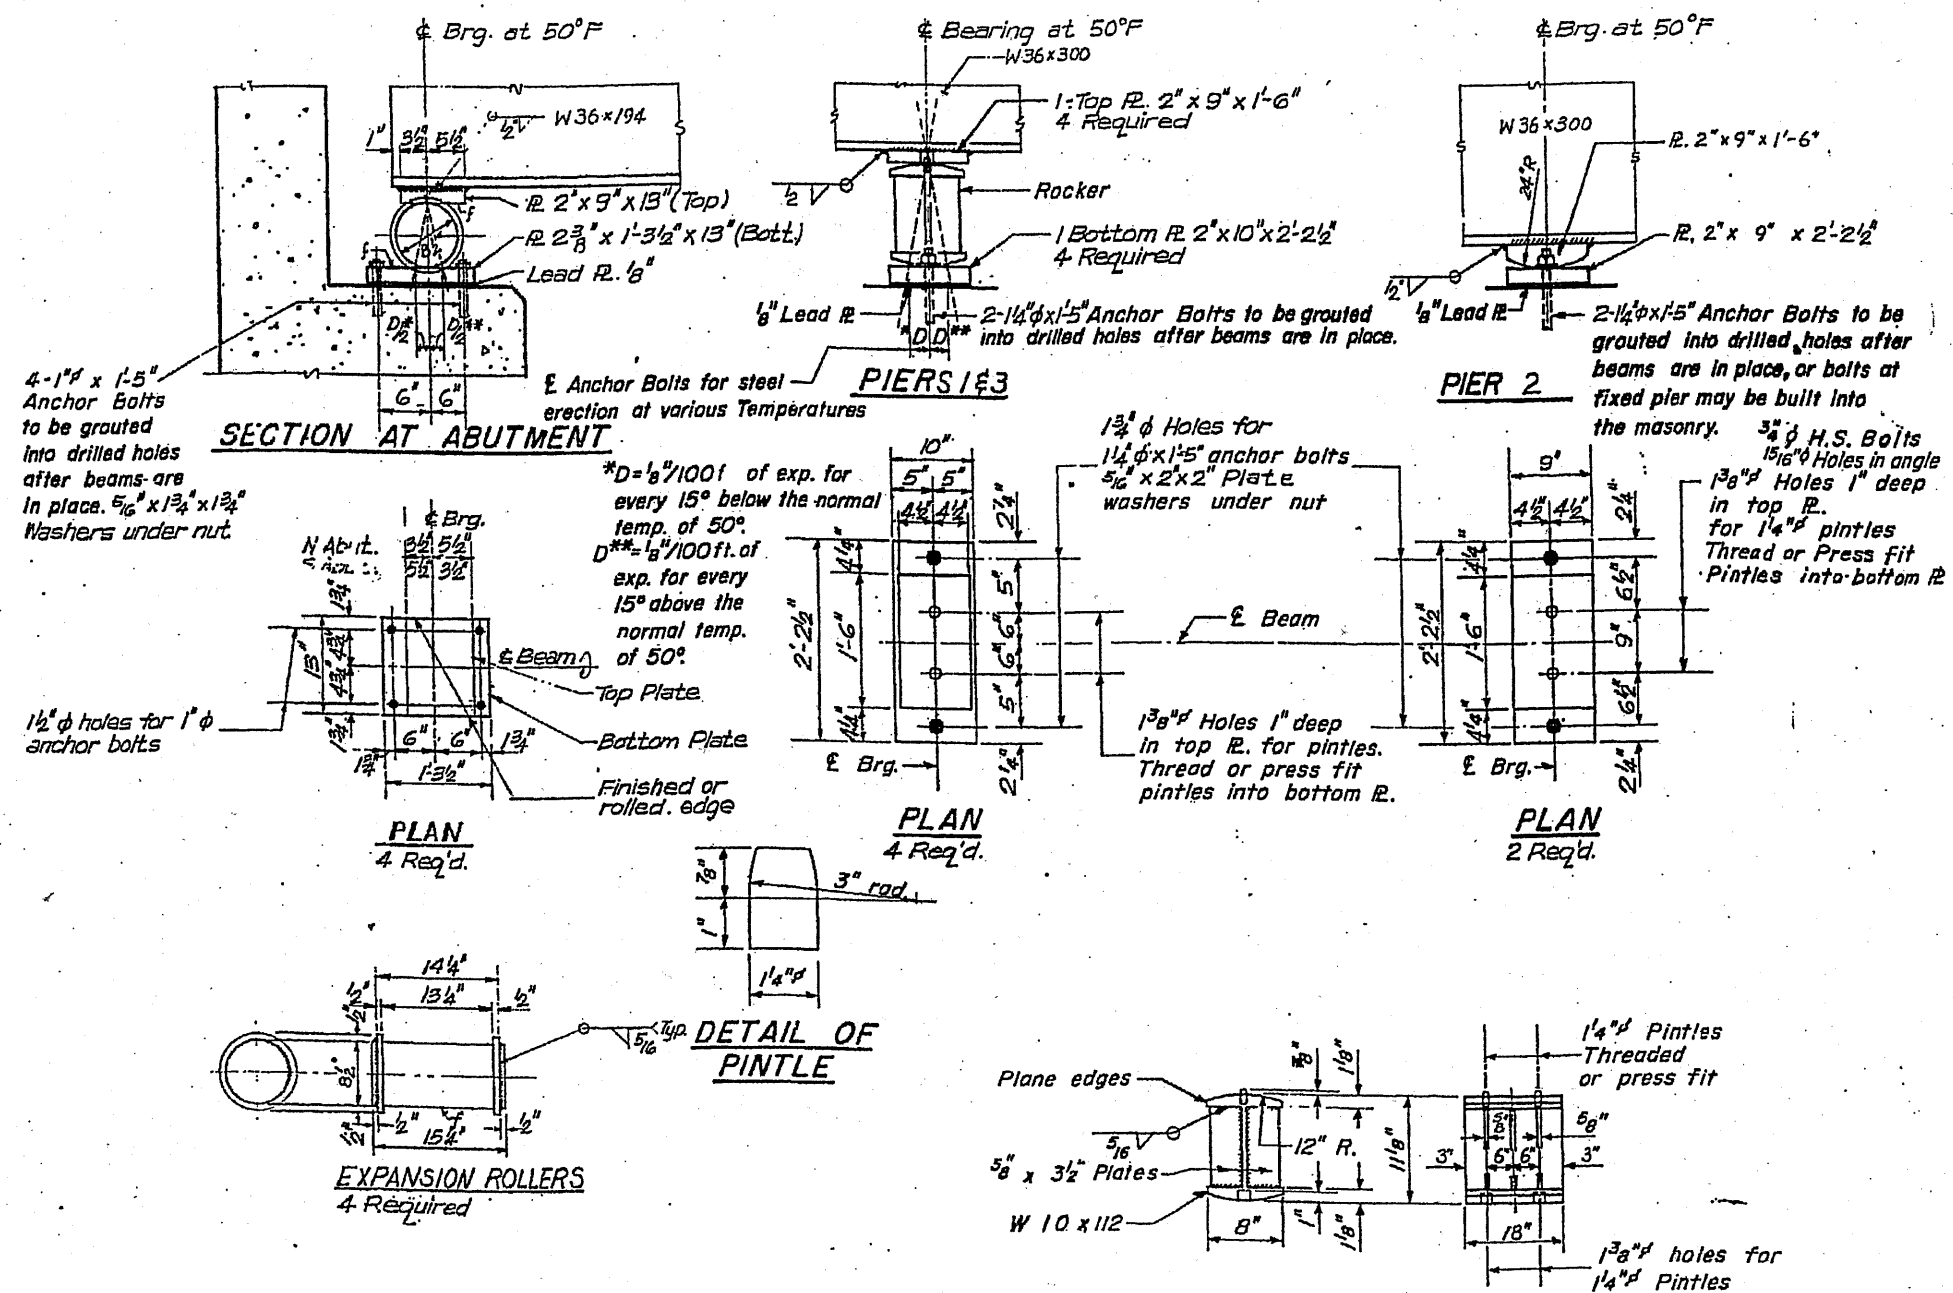 ℄ Brg. at 50°F
1" 3½" 5½"
½
W36×194
℞ 2" x 9" x 13" (Top)
f
℞ 2⅜" x 1'-3½" x 13" (Bott.)
f
Lead ℞. ⅛"
D/2* D/2**
6" 6"
4-1"ø x 1'-5"
Anchor Bolts
to be grouted
into drilled holes
after beams are
in place. 5/16" x 1¾" x 1¾"
Washers under nut
SECTION AT ABUTMENT
℄ Bearing at 50°F
W36×300
1-Top ℞. 2" x 9" x 1'-6"
4 Required
½
Rocker
1 Bottom ℞ 2" x 10" x 2'-2½"
4 Required
⅛" Lead ℞
2-1¼"φx1'-5" Anchor Bolts to be grouted
into drilled holes after beams are in place.
* D D **
℄ Anchor Bolts for steel
erection at various Temperatures
PIERS 1 & 3
℄ Brg. at 50°F
W36×300
24"R
℞. 2" x 9" x 1'-6"
℞. 2" x 9" x 2'-2½"
½"
⅛" Lead ℞
2-1¼"φx1'-5" Anchor Bolts to be
grouted into drilled holes after
beams are in place, or bolts at
fixed pier may be built into
the masonry.
PIER 2
*D=⅛"/100f of exp. for
every 15° below the normal
temp. of 50°.
D**=⅛"/100ft. of
exp. for every
15° above the
normal temp.
of 50°.
℄ Brg.
N Abut. 3½" 5½"
5½" 3½"
1¾"
13" 4¾"
4¾"
1¾"
℄ Beam
Top Plate
1½" φ holes for 1" φ
anchor bolts
6" 6" 1¾"
1¾"
1'-3½"
Bottom Plate
Finished or
rolled edge
PLAN
4 Req'd.
10"
5" 5"
4½" 4½"
2¼"
4¼"
5"
2'-2½" 1'-6"
6" 6"
5"
4¼"
2¼"
℄ Brg.
PLAN
4 Req'd.
1¾" φ Holes for
1¼" φx1'-5" anchor bolts
5/16" x 2" x 2" Plate
washers under nut
℄ Beam
1⅜"ø Holes 1" deep
in top ℞. for pintles.
Thread or press fit
pintles into bottom ℞.
9"
4½" 4½"
2¼"
4¼"
6½"
2'-2½" 1'-6" 9"
6½"
4¼"
2¼"
℄ Brg.
PLAN
2 Req'd.
¾" φ H.S. Bolts
15/16"φ Holes in angle
1⅜"ø Holes 1" deep
in top ℞.
for 1¼"ø pintles
Thread or Press fit
Pintles into bottom ℞
⅞"
3" rad.
1"
1¼"ø
DETAIL OF
PINTLE
14¼"
½" 13¼" ½"
½"
8½"
5/16 Typ.
½" ½" f ½"
15¼"
EXPANSION ROLLERS
4 Required
Plane edges
⅞" 1⅛"
5/16
12" R.
11⅛"
⅝" x 3½" Plates
W 10 x 112
8"
1" 1⅛"
1¼"ø Pintles
Threaded
or press fit
⅝" ⅝"
3" 6" 6" 3"
18"
1⅜"ø holes for
1¼"ø Pintles